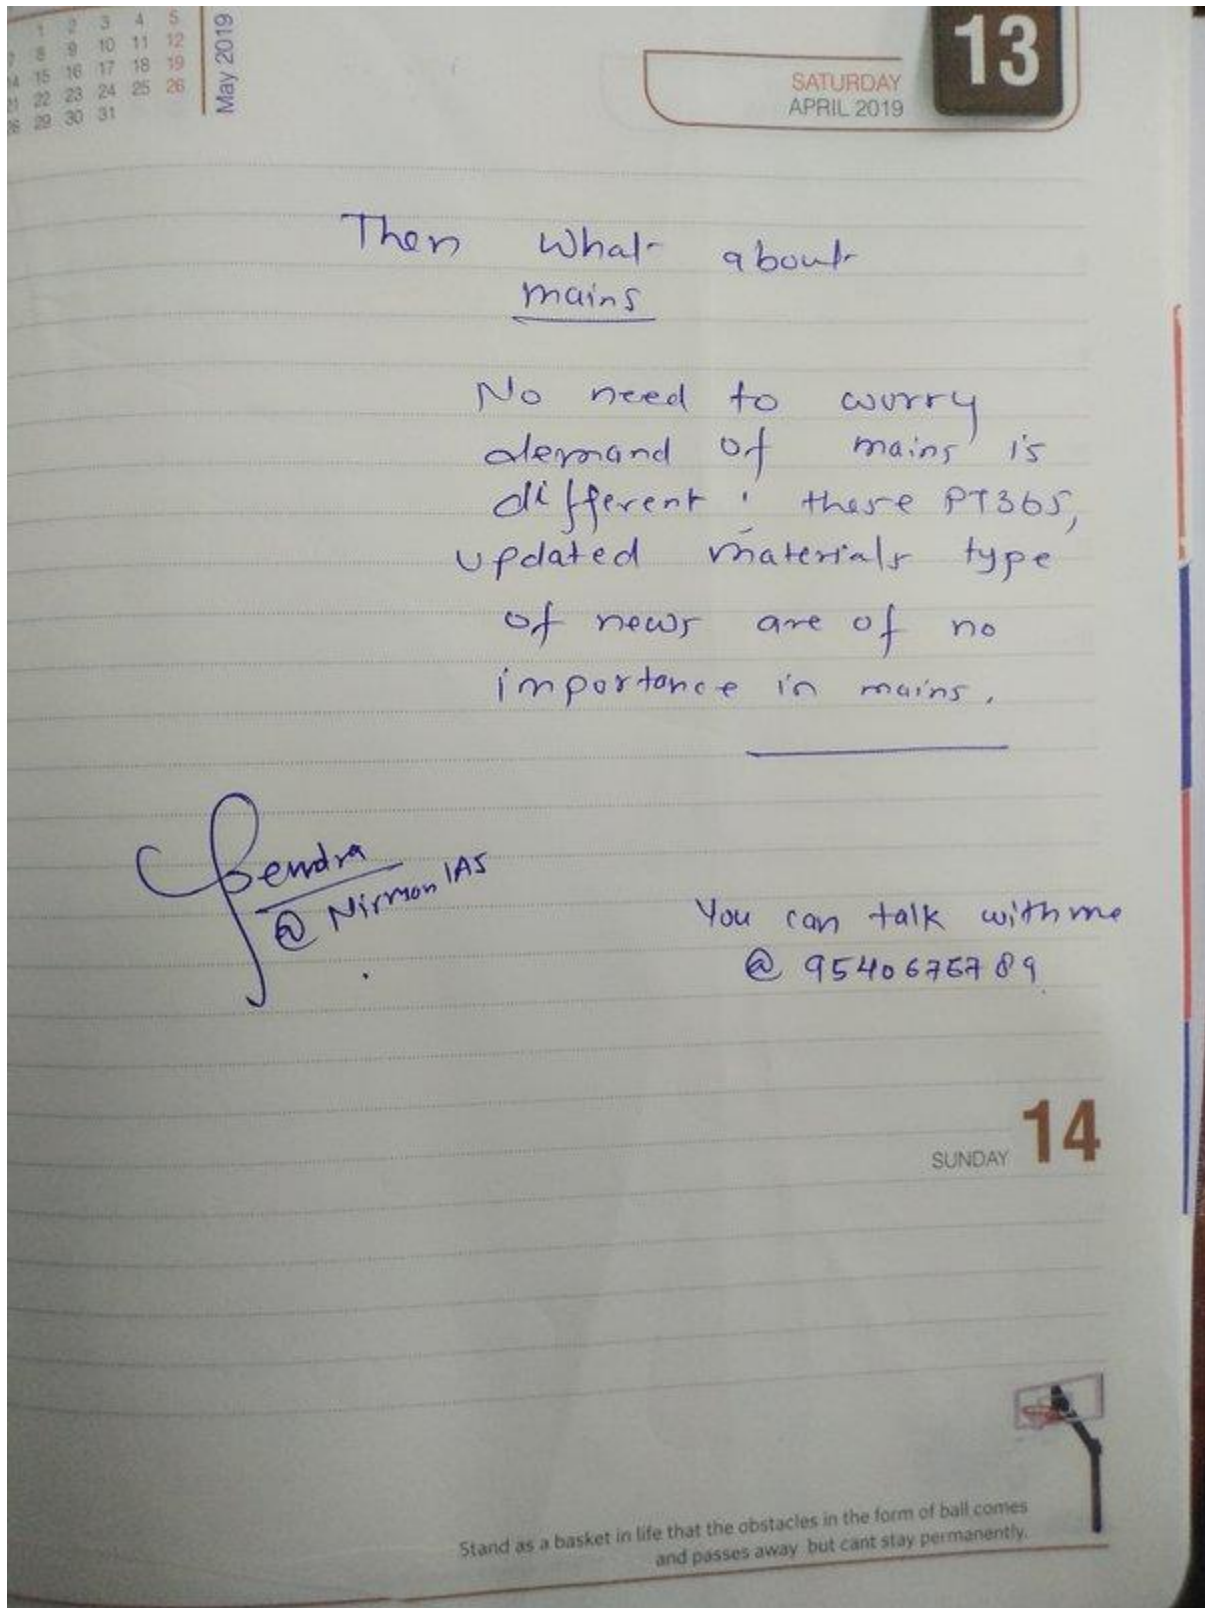 1 2 3 4 5
8 9 10 11 12
14 15 16 17 18 19
21 22 23 24 25 26
28 29 30 31
May 2019
13
SATURDAY
APRIL 2019
Then what about
mains
No need to worry
demand of mains is
different. these PT365,
updated materials type
of news are of no
importance in mains.
@ Nirman IAS
You can talk with me
@ 9540676789
14
SUNDAY
Stand as a basket in life that the obstacles in the form of ball comes
and passes away but cant stay permanently.